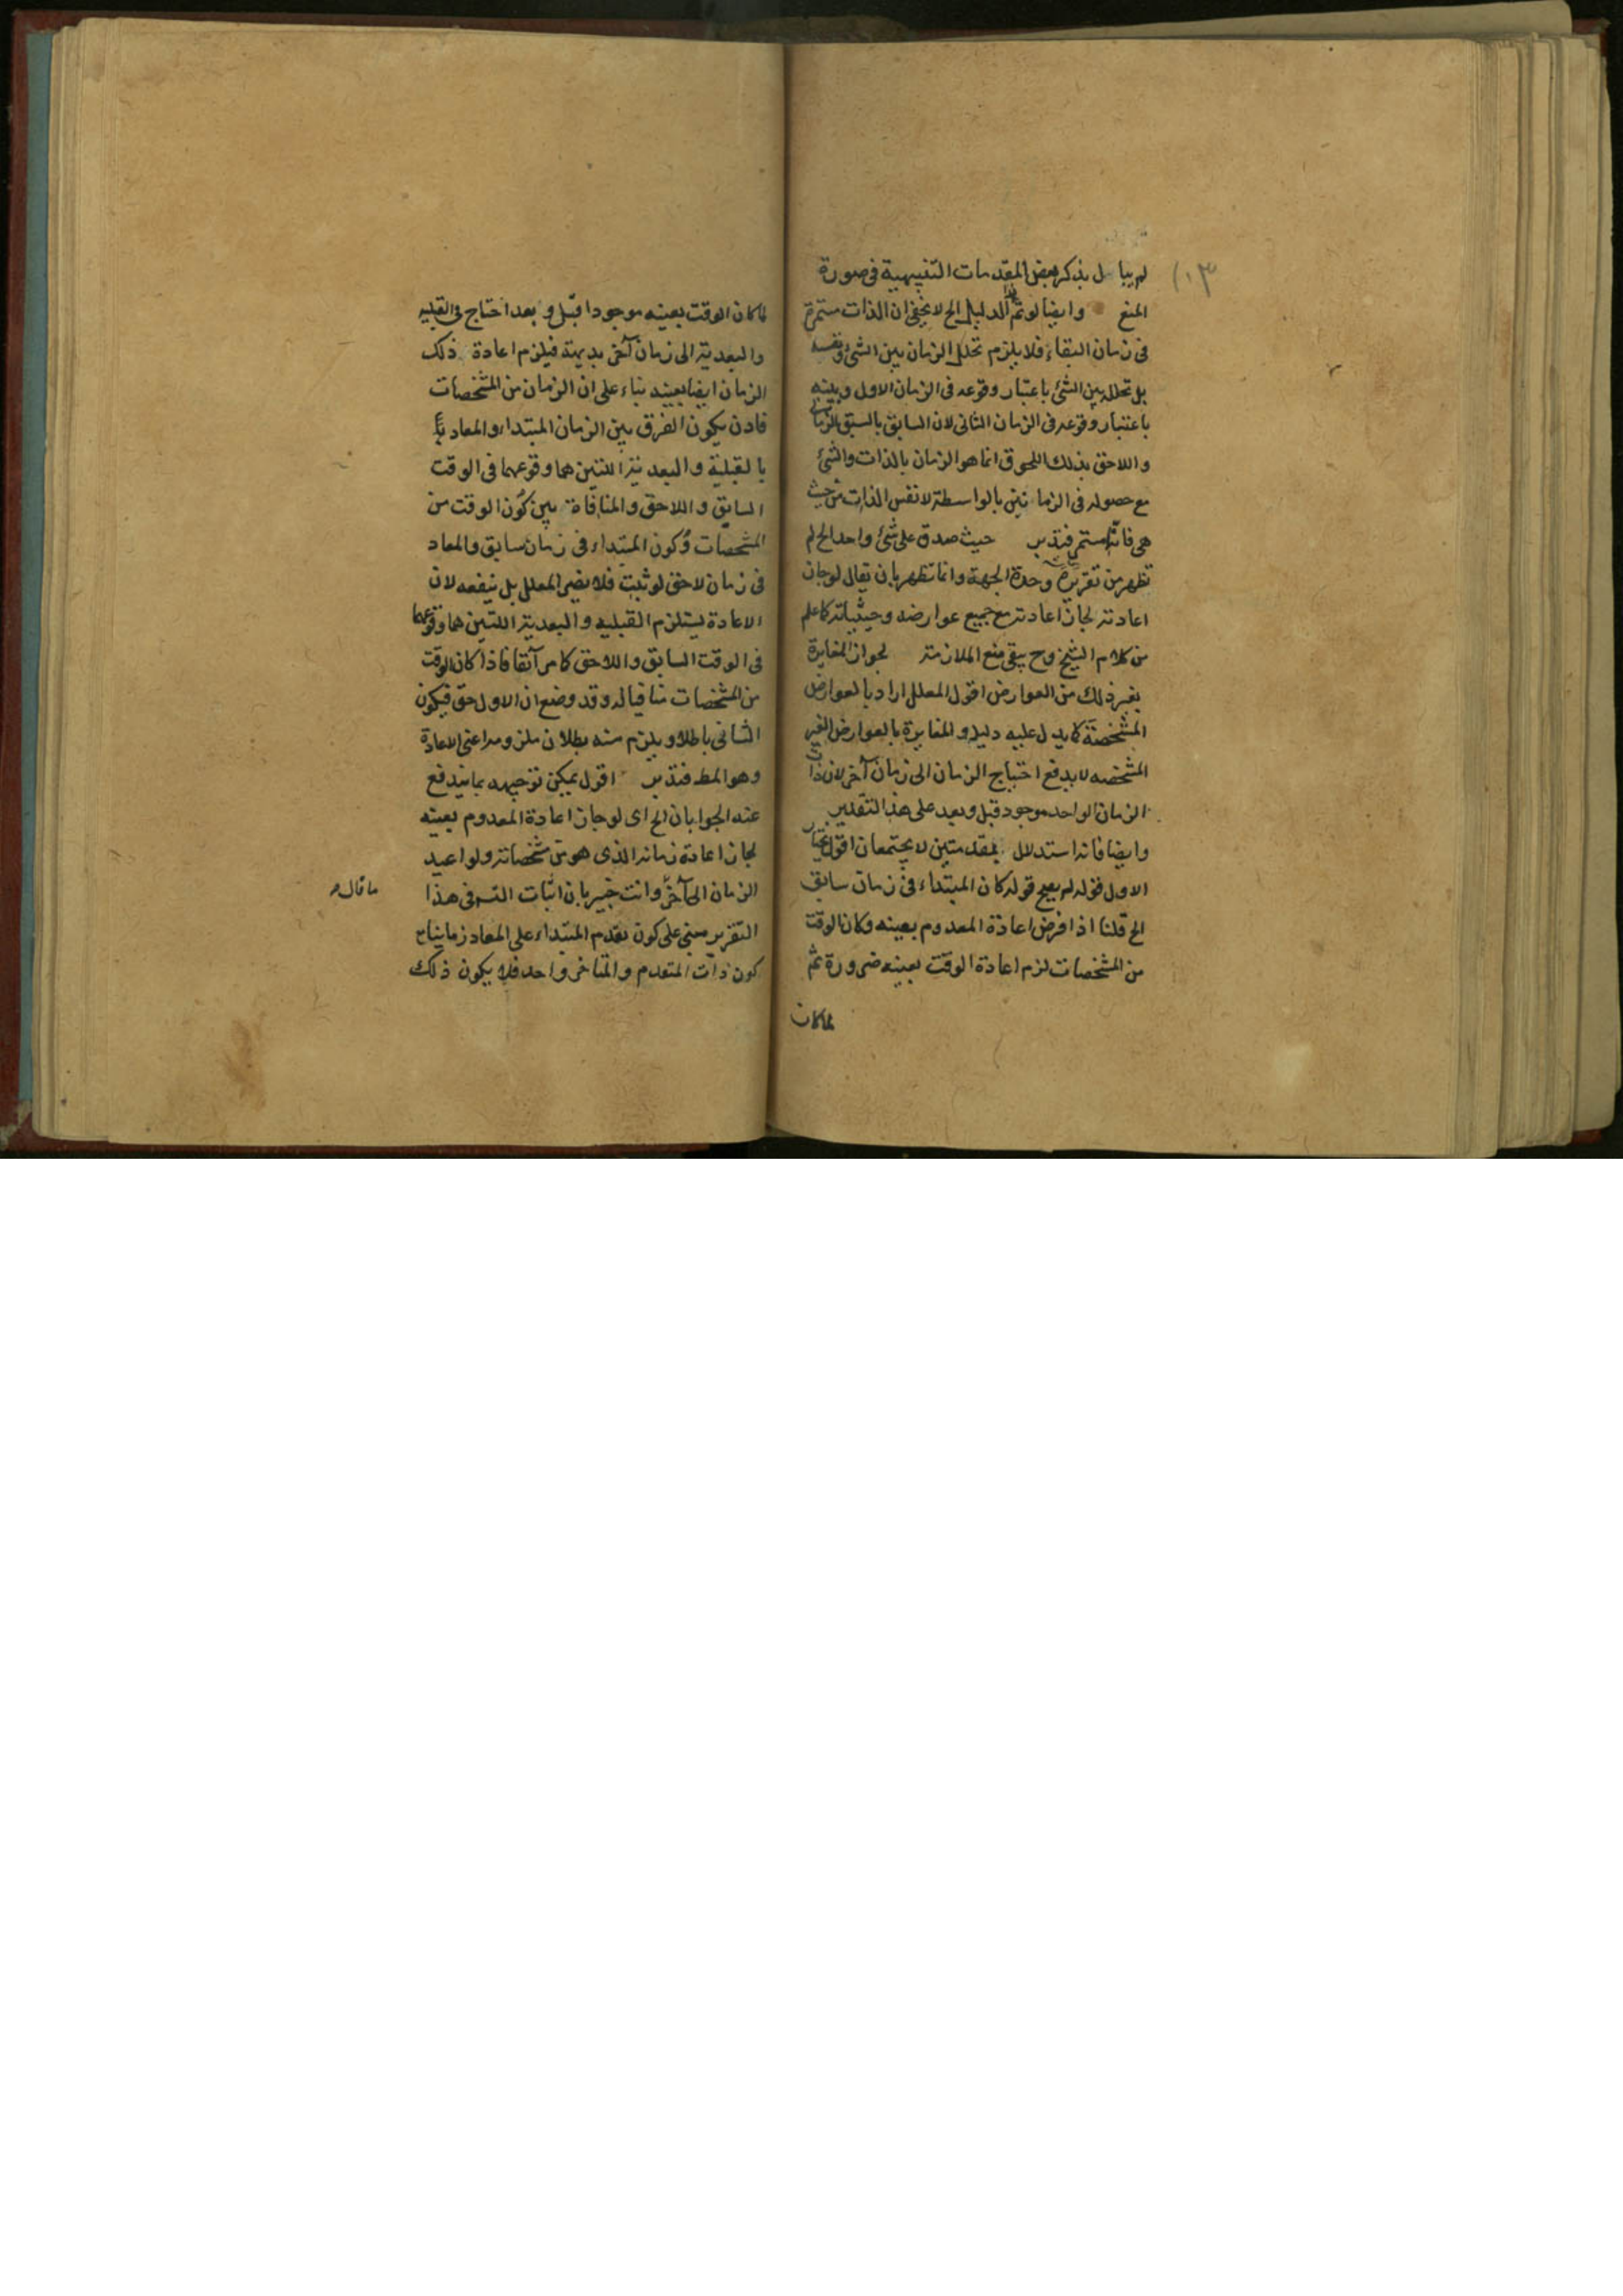 ١٣
لم يبال بذكر بعض المقدمات التنبيهية فى صورة
المنع وايضا لو تم الدليل الخ لا يخفى ان الذات مستمرة
فى زمان البقاء فلا يلزم تخلل الزمان بين الشئ ونفسه
بل تخلله بين الشئ باعتبار وقوعه فى الزمان الاول وبينه
باعتبار وقوعه فى الزمان الثانى لان السابق بالسبق الزمانى
واللاحق بذلك اللحوق انما هو الزمان بالذات والشئ
مع حصوله فى الزمانين بالواسطة لا نفس الذات من حيث
هى فانه مستمر فتدبر حيث صدق على شئ واحد الخ لم
تظهر من تقريره وحدة الجهة وانما تظهر بان يقال لو جاز
اعادته لجاز اعادته مع جميع عوارضه وحيثياته كما علم
من كلام الشيخ وح يبقى منع الملازمة لجواز المغايرة
بغير ذلك من العوارض اقول المعلل اراد بالعوارض
المشخصة كما يدل عليه دليله والمغايرة بالعوارض الغير
المشخصه لا يدفع احتياج الزمان الى زمان آخر لان ذات
الزمان الواحد موجود قبل وبعد على هذا التقدير
وايضا فانه استدلال بمقدمتين لا يجتمعان اقول نختار
الاول قوله لم يصح قوله كان المبتداء فى زمان سابق
الخ قلنا اذا فرض اعادة المعدوم بعينه وكان الوقت
من المشخصات لزم اعادة الوقت بعينه ضرورة ثم
لما كان
لما كان الوقت بعينه موجودا قبل وبعد احتاج فى القبليه
والبعدية الى زمان آخر بديهة فيلزم اعادة ذلك
الزمان ايضا بعينه بناء على ان الزمان من المشخصات
فاذن يكون الفرق بين الزمان المبتداء والمعاد
بالقبلية والبعدية اللتين هما وقوعهما فى الوقت
السابق واللاحق والمنافاة بين كون الوقت من
المشخصات وكون المبتداء فى زمان سابق والمعاد
فى زمان لاحق لو ثبت فلا يضر المعلل بل ينفعه لان
الاعادة يستلزم القبليه والبعدية اللتين هما وقوعهما
فى الوقت السابق واللاحق كما مر آنفا فاذا كان الوقت
من المشخصات منافيا له وقد وضع ان الاول حق فيكون
الثانى باطلا ويلزم منه بطلان ملزومه اعنى الاعادة
وهو المط فتدبر اقول يمكن توجيهه بما يندفع
عنه الجواب بان الخ اى لو جاز اعادة المعدوم بعينه
لجاز اعادة زمانه الذى هو من مشخصاته ولو اعيد
الزمان الى آخره وانت خبير بان اثبات التسه فى هذا
ما قال
التقرير مبنى على كون تقدم المبتداء على المعاد زمانيا ح
كون ذات المتقدم والمتاخر واحد فلا يكون ذلك